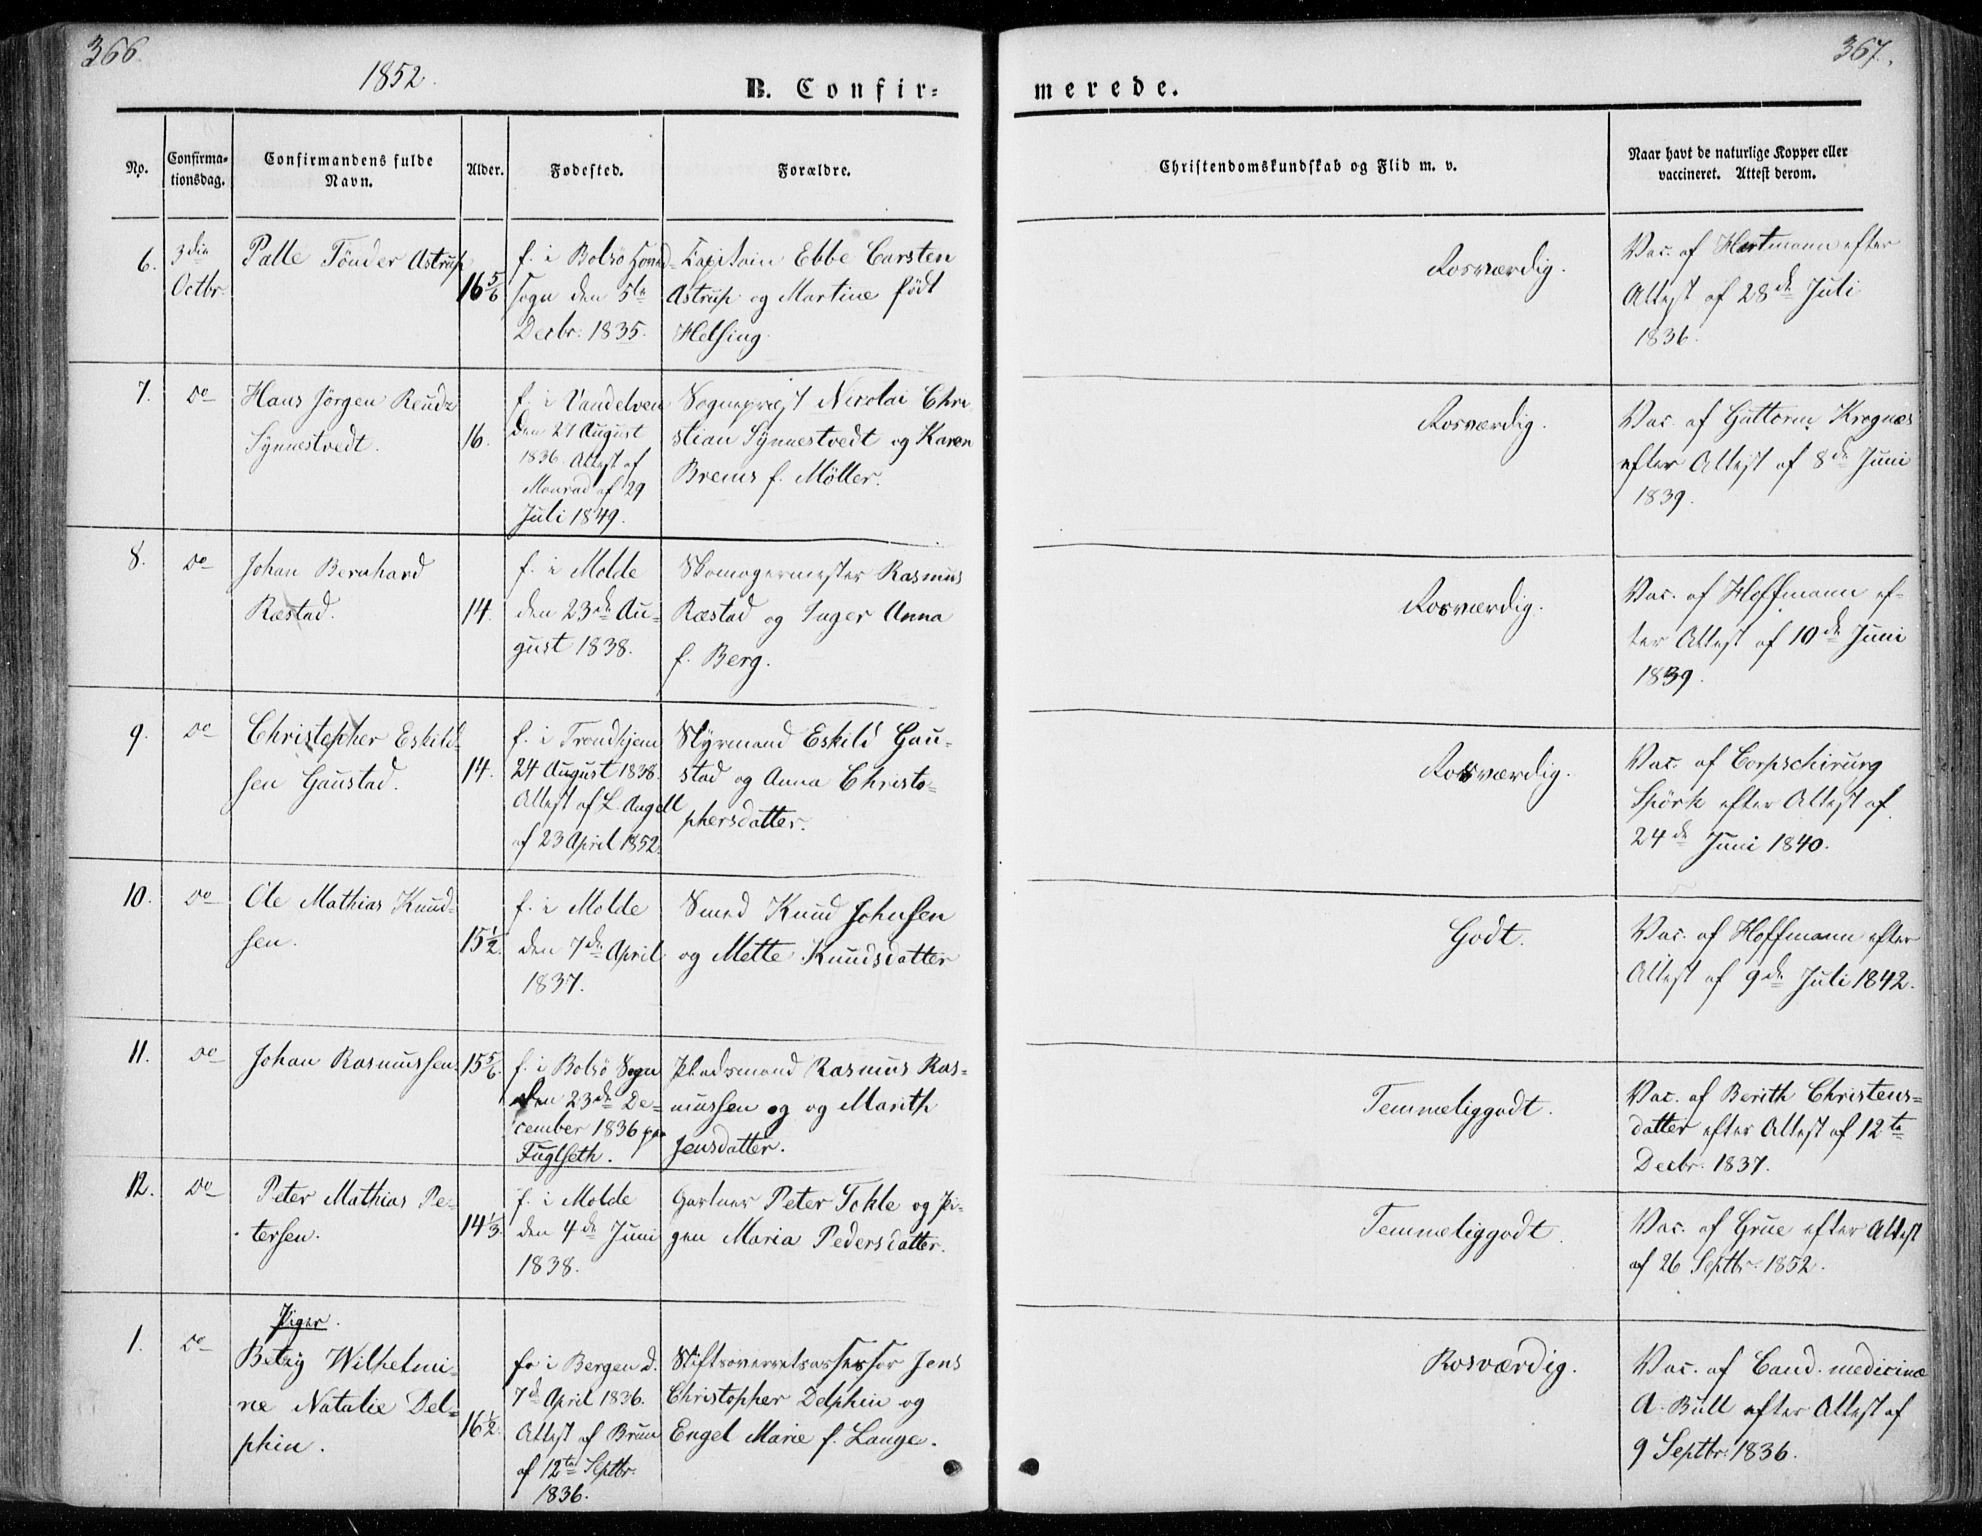 366.
1852.
B. Confir=
No.
Confirma=
tionsdag.
Confirmandens fulde
Navn.
Alder.
Fødested.
Forældre.
6.
3die
Octbr.
Palle Tönder Astrup
16 5/6
f. i Bolsö
Sogn den 5te
Decbr. 1835.
Capitain Ebbe Carsten
Astrup og Martine født
Helsing.
7.
Do
Hans Jörgen
Synnestvedt.
16.
f. i Vandelven
den 27 August
1836. Attest af
Monrad af 29
Juli 1849.
Sognepræst Nicolai Chri
stian Synnestvedt og Karen
Brems f. Möller.
8.
Do
Johan Bernhard
Ræstad.
14.
f. i Molde
den 23de Au=
gust 1838.
Skomagermester Rasmus
Ræstad og Inger Anna
f. Berg.
9.
Do
Christopher Eskild=
sen Gaustad.
14.
f. i Trondhjem
24 August 1838.
Attest af L. Angell
af 23 April 1852.
Styrmand Eskild Gau=
stad og Anna Christo=
phersdatter.
10.
Do
Ole Mathias Knud=
sen.
15 1/2
f. i Molde
den 7de April
1837.
Smed Knud Johnsen
og Mette Knudsdatter
11.
Do
Johan Rasmussen.
15 5/6.
f. i Bolsö Sogn
den 23de De=
cember 1836 paa
Fuglseth.
Pladsmand Rasmus Ras=
mussen og og Marith
Jensdatter.
12.
Do
Peter Mathias Pe=
tersen.
14 1/3.
f. i Molde
den 4de Juni
1838.
Gartner Peter Tokle og Pi=
gen Maria Pedersdatter.
Piger.
1.
Do
Betzy Wilhelmi=
ne Natalie Del=
phin.
16 1/2.
fo i Bergen d.
7de April 1836.
Attest af Brun
af 12te Septbr.
1836.
Stiftsoverretsassessor Jens
Christopher Delphin og
Engel Marie f. Lange.
367.
merede.
Christendomskundskab og Flid m. v.
Naar havt de naturlige Kopper eller
vaccineret. Attest derom.
Rosværdig.
Vac. af Hartmann efter
Attest af 28de Juli
1836.
Rosværdig.
Vac. af Guttorm Krognæs
efter Attest af 8de Juni
1839.
Rosværdig.
Vac. af Hoffmann ef=
ter Attest af 10de Juni
1839.
Rosværdig.
Vac. af Corpschirurg
Spörk efter Attest af
24de Juni 1840.
Godt.
Vac. af Hoffmann efter
Attest af 9de Juli 1842.
Temmeliggodt.
Vac. af Berith Christens=
datter efter Attest af 12te
Decbr. 1837.
Temmeliggodt.
Vac. af Grue efter Attest
af 26 Septbr. 1852.
Rosværdig.
Vac. af Cand. medicinæ
A. Bull efter Attest af
9 Septbr. 1836.